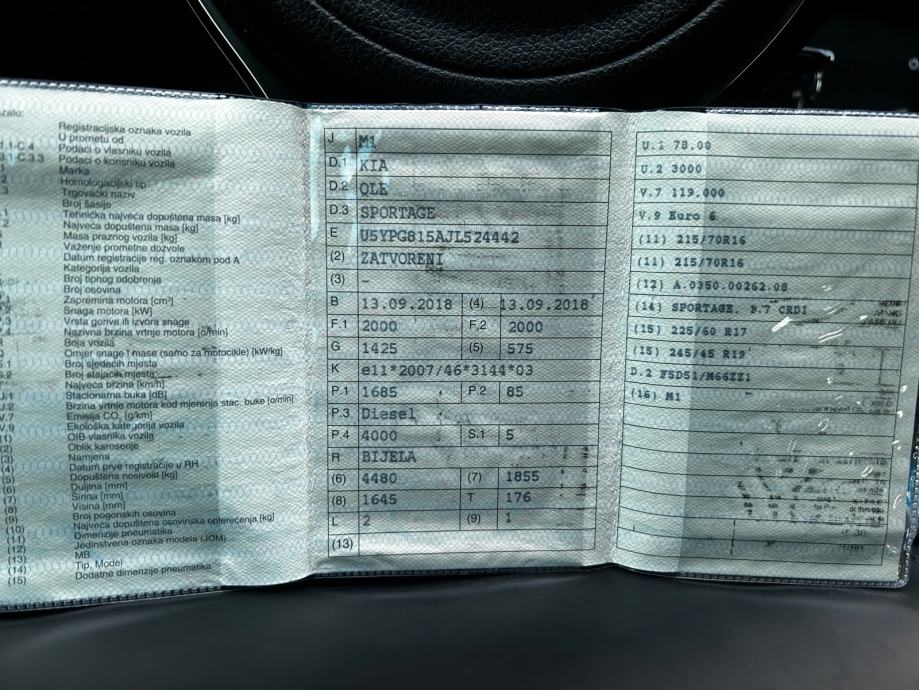 Registracijska oznaka vozila
U prometu od
Podaci o vlasniku vozila
Podaci o korisniku vozila
Marka
Homologacijski tip
Trgovački naziv
Broj šasije
Tehnička najveća dopuštena masa [kg]
Najveća dopuštena masa [kg]
Masa praznog vozila [kg]
Važenje prometne dozvole
Datum registracije reg. oznakom pod A
Kategorija vozila
Broj tipnog odobrenja
Broj osovina
Zapremina motora [cm³]
Snaga motora [kW]
Vrsta goriva ili izvora snage
Nazivna brzina vrtnje motora [o/min]
Boja vozila
Omjer snage i mase (samo za motocikle) [kW/kg]
Broj sjedećih mjesta
Broj stajaćih mjesta
Najveća brzina [km/h]
Stacionarna buka [dB]
Brzina vrtnje motora kod mjerenja stac. buke [o/min]
Emisija CO₂ [g/km]
Ekološka kategorija vozila
(1) OIB vlasnika vozila
(2) Oblik karoserije
(3) Namjena
(4) Datum prve registracije u RH
(5) Dopuštena nosivost [kg]
(6) Duljina [mm]
(7) Širina [mm]
(8) Visina [mm]
(9) Broj pogonskih osovina
(10) Najveća dopuštena osovinska opterećenja [kg]
(11) Dimenzije pneumatika
(12) Jedinstvena oznaka modela (JOM)
(13) MB
(14) Tip, Model
(15) Dodatne dimenzije pneumatika
J M1
D.1 KIA
D.2 QLE
D.3 SPORTAGE
E U5YPG815AJL524442
(2) ZATVORENI
(3) –
B 13.09.2018 (4) 13.09.2018
F.1 2000 F.2 2000
G 1425 (5) 575
K e11*2007/46*3144*03
P.1 1685 P.2 85
P.3 Diesel
P.4 4000 S.1 5
R BIJELA
(6) 4480 (7) 1855
(8) 1645 T 176
L 2 (9) 1
(13)
U.1 78.00
U.2 3000
V.7 119.000
V.9 Euro 6
(11) 215/70R16
(11) 215/70R16
(12) A.0350.00262.08
(14) SPORTAGE. CRDI
(15) 225/60 R17
(15) 245/45 R19
D.2 F5D51/M66ZZ1
(16) M1